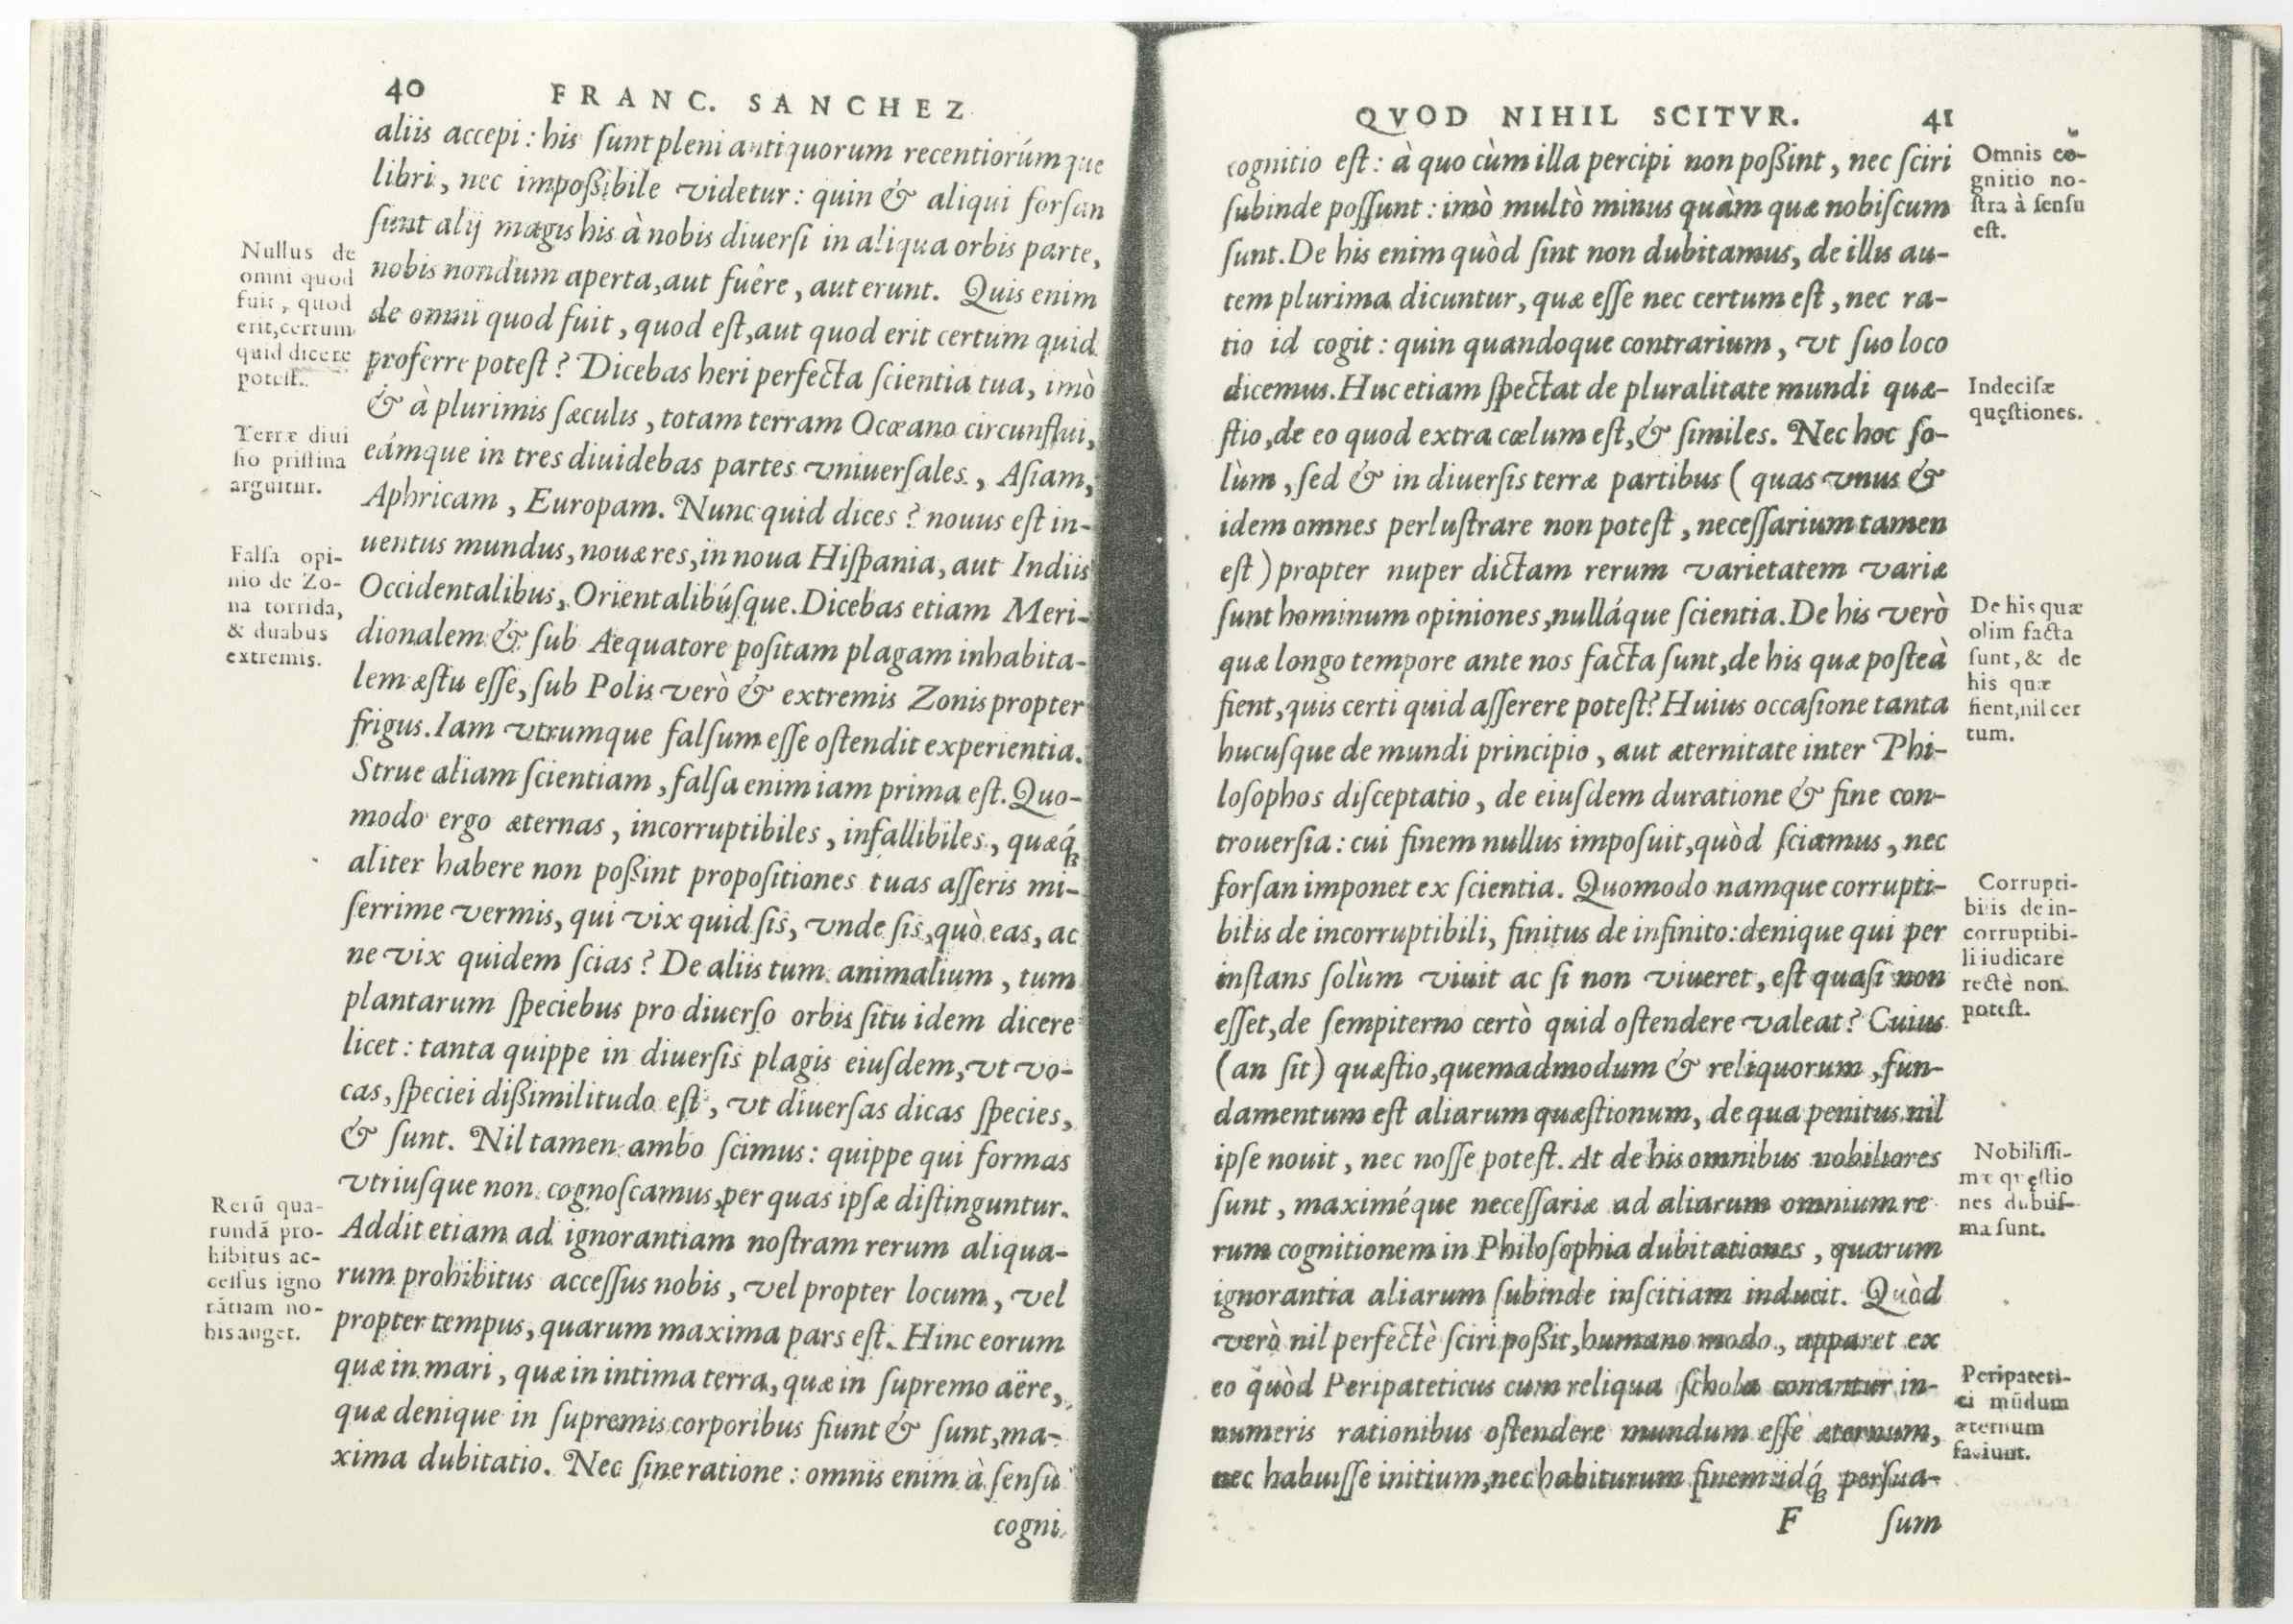 40 FRANC. SANCHEZ
aliis accepi: his ſunt pleni antiquorum recentiorúmque
libri, nec impoßibile videtur: quin & aliqui forſan
ſunt alij magis his à nobis diuerſi in aliqua orbis parte,
nobis nondum aperta, aut fuêre, aut erunt. Quis enim
de omni quod fuit, quod eſt, aut quod erit certum quid
proferre poteſt? Dicebas heri perfecta ſcientia tua, imò
& à plurimis ſæculis, totam terram Ocœano circunflui,
eámque in tres diuidebas partes vniuerſales, Aſiam,
Aphricam, Europam. Nunc quid dices? nouus eſt in-
uentus mundus, nouæ res, in noua Hiſpania, aut Indiis
Occidentalibus, Orientalibúſque. Dicebas etiam Meri-
dionalem & ſub Aequatore poſitam plagam inhabita-
lem æſtu eſſe, ſub Polis verò & extremis Zonis propter
frigus. Iam vtrumque falſum eſſe oſtendit experientia.
Strue aliam ſcientiam, falſa enim iam prima eſt. Quo-
modo ergo æternas, incorruptibiles, infallibiles, quæq́ꝫ
aliter habere non poßint propoſitiones tuas aſſeris mi-
ſerrime vermis, qui vix quid ſis, vnde ſis, quò eas, ac
ne vix quidem ſcias? De aliis tum animalium, tum
plantarum ſpeciebus pro diuerſo orbis ſitu idem dicere
licet: tanta quippe in diuerſis plagis eiuſdem, vt vo-
cas, ſpeciei dißimilitudo eſt, vt diuerſas dicas ſpecies,
& ſunt. Nil tamen ambo ſcimus: quippe qui formas
vtriuſque non cognoſcamus, per quas ipſæ diſtinguntur.
Addit etiam ad ignorantiam noſtram rerum aliqua-
rum prohibitus acceſſus nobis, vel propter locum, vel
propter tempus, quarum maxima pars eſt. Hinc eorum
quæ in mari, quæ in intima terra, quæ in ſupremo aëre,
quæ denique in ſupremis corporibus fiunt & ſunt, ma-
xima dubitatio. Nec ſine ratione: omnis enim à ſenſu
cogni
Nullus de
omni quod
fuit, quod
erit, certum
quid dicere
poteſt.
Terræ diui
ſio priſtina
arguitur.
Falſa opi-
nio de Zo-
na torrida,
& duabus
extremis.
Rerū qua-
rundā pro-
hibitus ac-
ceſſus igno
rātiam no-
bis auget.
QVOD NIHIL SCITVR. 41
cognitio eſt: à quo cùm illa percipi non poßint, nec ſciri
ſubinde poſſunt: imò multò minus quàm quæ nobiſcum
ſunt. De his enim quòd ſint non dubitamus, de illis au-
tem plurima dicuntur, quæ eſſe nec certum eſt, nec ra-
tio id cogit: quin quandoque contrarium, vt ſuo loco
dicemus. Huc etiam ſpectat de pluralitate mundi quæ-
ſtio, de eo quod extra cœlum eſt, & ſimiles. Nec hoc ſo-
lùm, ſed & in diuerſis terræ partibus (quas vnus &
idem omnes perluſtrare non poteſt, neceſſarium tamen
eſt) propter nuper dictam rerum varietatem variæ
ſunt hominum opiniones, nulláque ſcientia. De his verò
quæ longo tempore ante nos facta ſunt, de his quæ poſteà
fient, quis certi quid aſſerere poteſt? Huius occaſione tanta
hucuſque de mundi principio, aut æternitate inter Phi-
loſophos diſceptatio, de eiuſdem duratione & fine con-
trouerſia: cui finem nullus impoſuit, quòd ſciamus, nec
forſan imponet ex ſcientia. Quomodo namque corrupti-
bilis de incorruptibili, finitus de infinito: denique qui per
inſtans ſolùm viuit ac ſi non viueret, eſt quaſi non
eſſet, de ſempiterno certò quid oſtendere valeat? Cuius
(an ſit) quæſtio, quemadmodum & reliquorum, fun-
damentum eſt aliarum quæſtionum, de qua penitus nil
ipſe nouit, nec noſſe poteſt. At de his omnibus nobiliores
ſunt, maximéque neceſſariæ ad aliarum omnium re
rum cognitionem in Philoſophia dubitationes, quarum
ignorantia aliarum ſubinde inſcitiam inducit. Quòd
verò nil perfectè ſciri poßit, humano modo, apparet ex
eo quòd Peripateticus cum reliqua ſchola conantur in-
numeris rationibus oſtendere mundum eſſe æternum,
nec habuiſſe initium, nec habiturum finem: idq́ꝫ perſua-
F ſum
Omnis co-
gnitio no-
ſtra à ſenſu
eſt.
Indeciſæ
quęſtiones.
De his quæ
olim facta
ſunt, & de
his quæ
fient, nil cer
tum.
Corrupti-
bilis de in-
corruptibi-
li iudicare
rectè non
poteſt.
Nobiliſſi-
mæ quęſtio
nes dubiiſ-
ma ſunt.
Peripateti-
ci mūdum
æternum
faciunt.